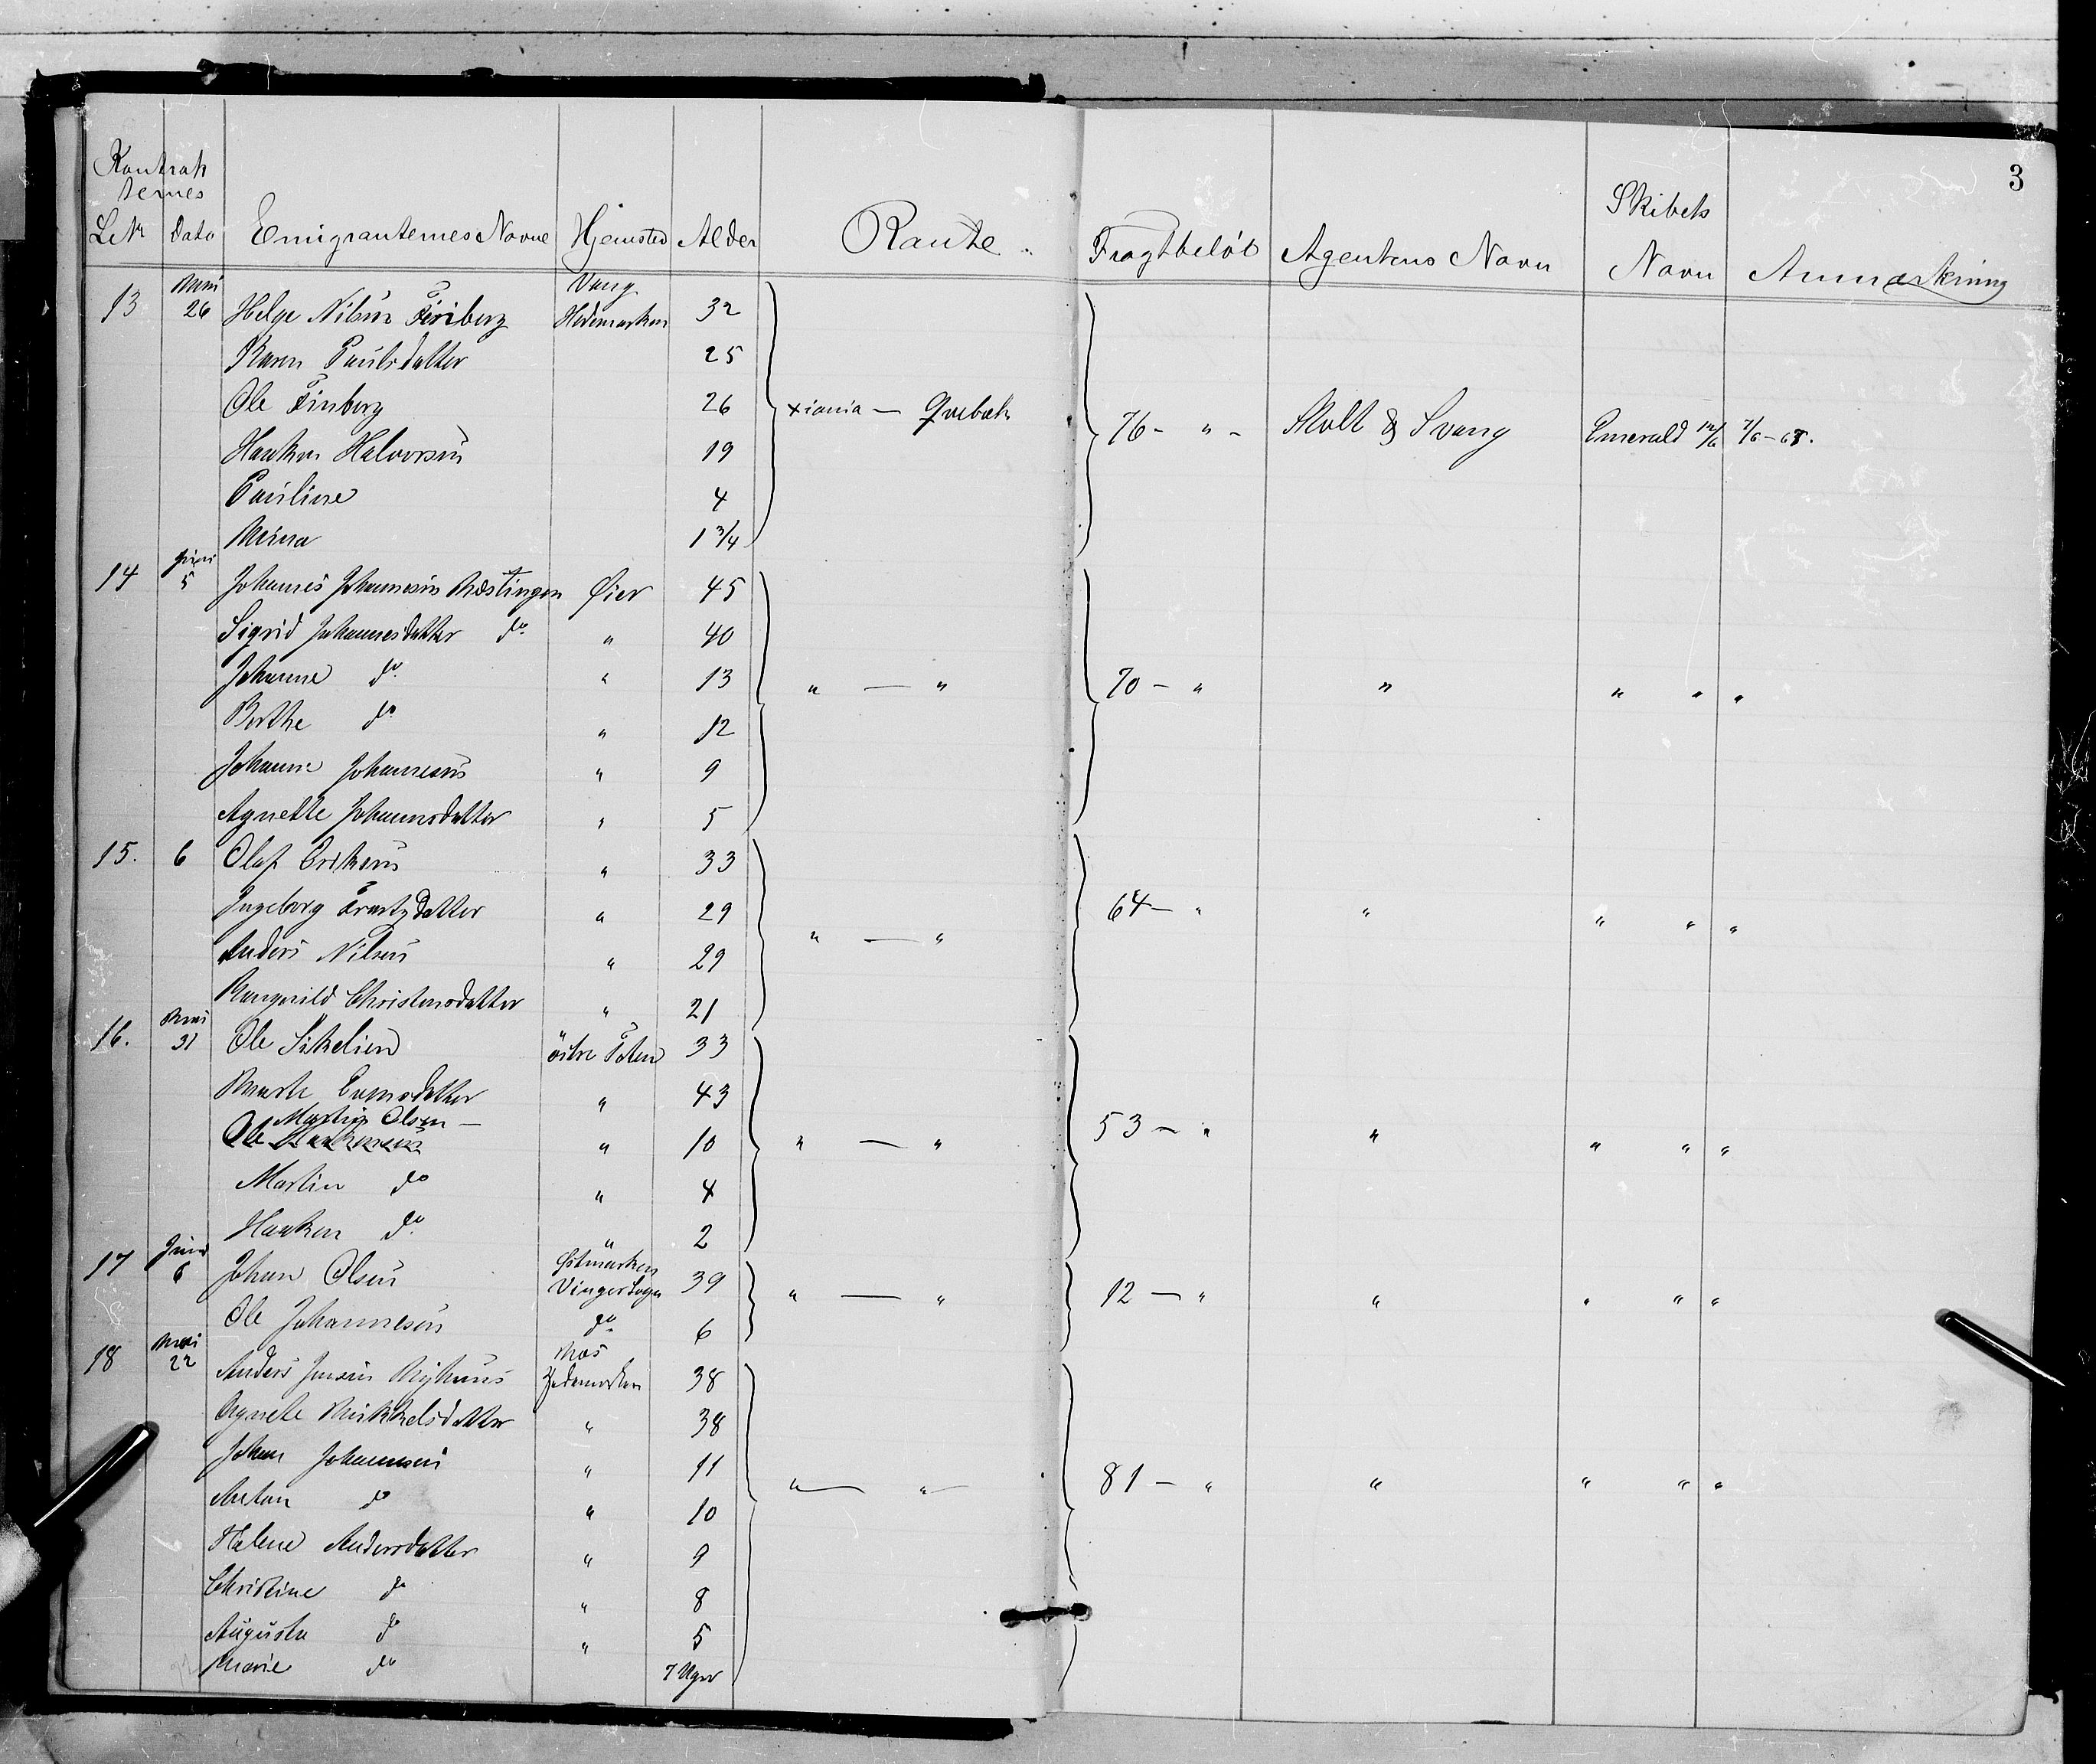 3
Kontrak
ternes
LNr Dato Emigranternes Navne Hjemsted Alder Raute Fragtbeløb Agentens Navn Skibets Navn Anmærkning
Mai Vang
13 26 Helge Nilsen Finberg Hedemarken 32
Karen Paulsdatter 25
Ole Finberg 26 Xiania — Qvebek 76 - " - Stolt & Svang Emerald 12/6 7/6-67.
Haaken Halvorsen 19
Pauline 4
Mina 1 3/4
Juni
14 5 Johannes Johannesen Øier 45
Sigrid Johannesdatter do " 40
Johanne do " 13 " — " 70 - " " " " "
Berthe do " 12
Johanne Johannesen " 9
Agnette Johannesdatter " 5
15. 6 Olaf Eriksen " 33
Ingeborg datter " 29 " — " 64 - " " " " "
Anders Nilsen " 29
Rangnild Christensdatter " 21
Mai
16. 31 Ole Sikelien östre Toten 33
Marte Evensdatter " 43
Martin Olsen —
Ole " 10 " — " 53 - " " " " "
Martin do " 4
Haaken do " 2
Juni Østmarken
17 6 Johan Olsen Vinger Sogn 39 " — " 12 - " " " " "
Ole Johannesen do 6
Mai Næs
18 22 Anders Jensen Nyhuus Hedemarken 38
Agnete Mikkelsdatter " 38
Johan Johannesen " 11 " — " 81 - " " " " "
Anton do " 10
Halene Andersdatter " 9
Christine do " 8
Augusta do " 5
Marie do 7 Uger